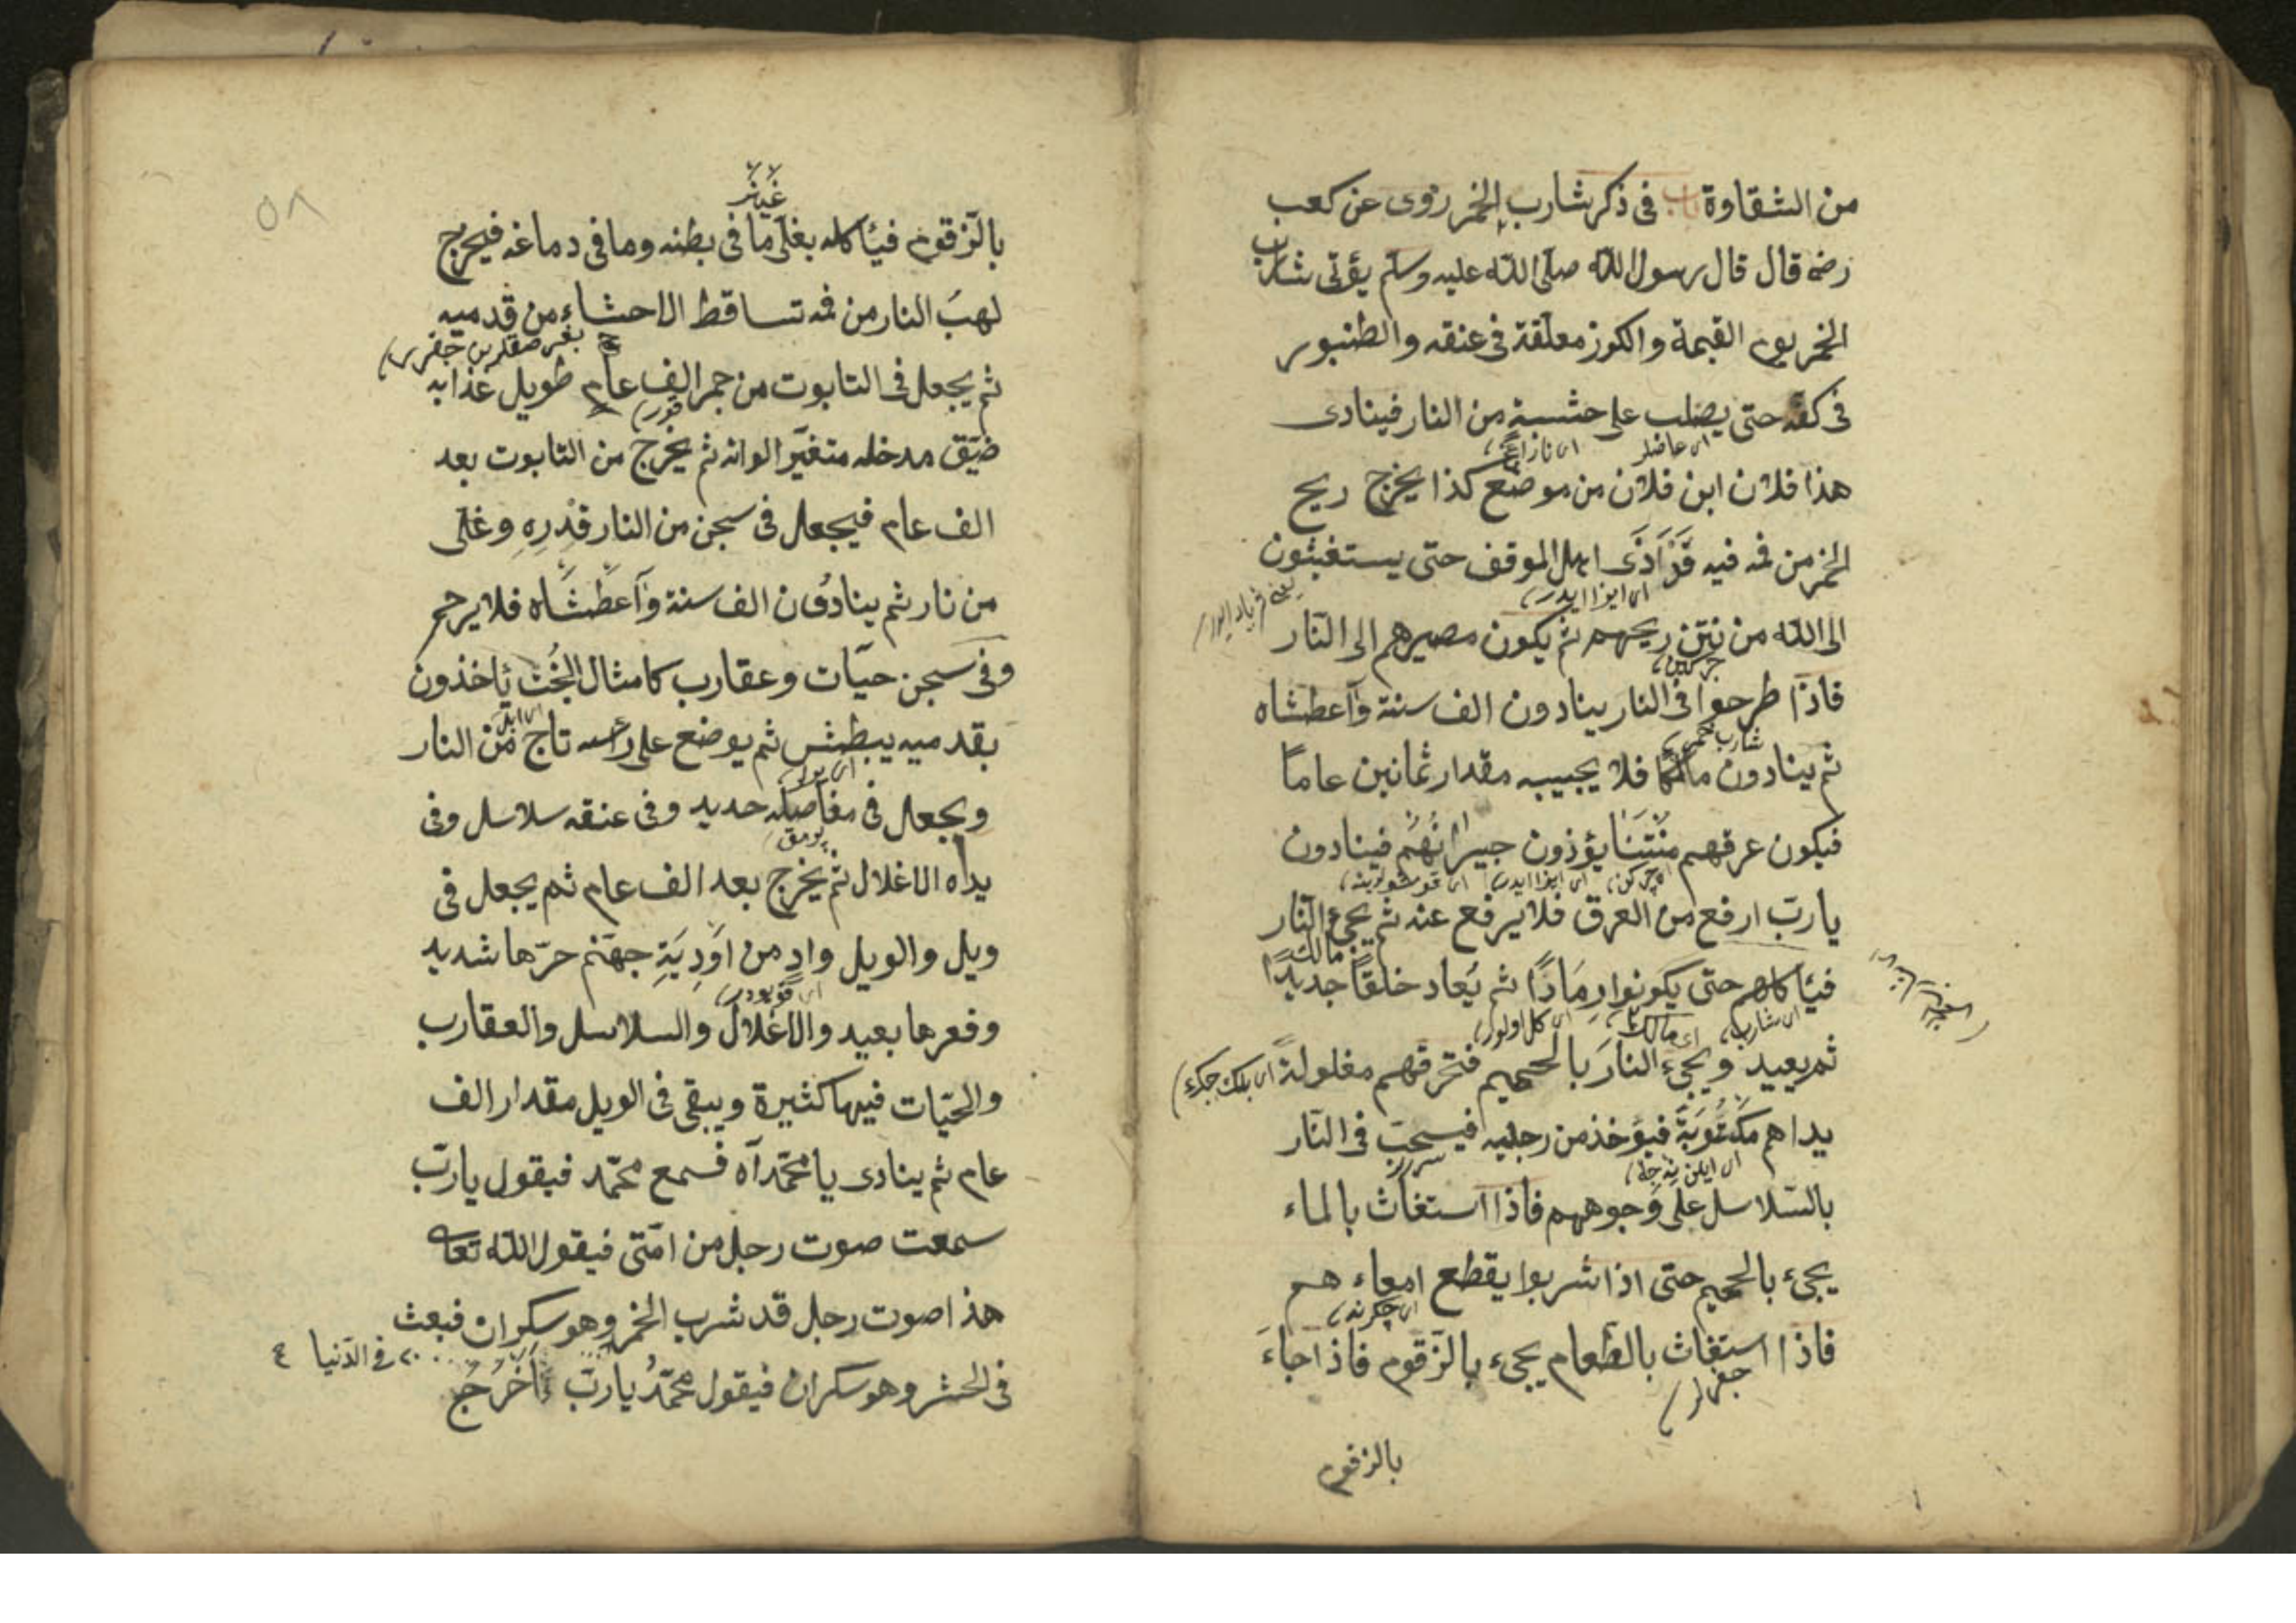 من الشقاوة باب فى ذكر شارب الخمر روى عن كعب
رضه قال قال رسول الله صلى الله عليه وسلم يؤتى شارب
الخمر يوم القيمة والكوز معلقة فى عنقه والطنبور
فى كفه حتى يصلب على حشبة من النار فينادى
هذا فلان ابن فلان من موضع كذا يخرج ريح
الخمر من فمه فيه قد اذى اهل الموقف حتى يستغيثون
الى الله من نتن ريحهم ثم يكون مصيرهم الى النار
فاذا طرحوا فى النار ينادون الف سنة وآعطشاه
ثم ينادون مالكا فلا يجيبه مقدار ثمانين عاما
فيكون عرقهم منتنا يؤذون جيرانهم فينادون
يارب ارفع من العرق فلا يرفع عنه ثم يجئ النار
فيأكلهم حتى يكونوا رمادا ثم يعاد خلقا جديدا
ثم يعيد ويجئ النار بالحميم فتحرقهم مغلولة
يداهم فيؤخذ من رجليه فيسحب فى النار
بالسلاسل على وجوههم فاذا استغاث بالماء
يجئ بالحميم حتى اذا شربوا يقطع امعاء هم
فاذا استغاث بالطعام يجئ بالزقوم فاذا جاء
بالزقوم
٥٨
بالزقوم فيأكله بغلى ما فى بطنه وما فى دماغه فيخرج
لهب النار من فمه تساقط الاحشاء من قدميه
ثم يجعل فى التابوت من جمر الف عام طويل عذابه
ضيق مدخله متغير الوانه ثم يخرج من التابوت بعد
الف عام فيجعل فى سجن من النار قدره وغلى
من نار ثم ينادون الف سنة وآعطشاه فلا يرحم
وفى سجن حيات وعقارب كامثال البخت يأخذون
بقدميه يبطش ثم يوضع على رأسه تاج من النار
ويجعل فى مفاصله حديد وفى عنقه سلاسل وفى
يداه الاغلال ثم يخرج بعد الف عام ثم يجعل فى
ويل والويل واد من اودية جهنم حرها شديد
وقعرها بعيد والاغلال والسلاسل والعقارب
والحيات فيها كثيرة ويبقى فى الويل مقدار الف
عام ثم ينادى يا محمد آه فسمع محمد فيقول يارب
سمعت صوت رجل من امتى فيقول الله تعا
هذا صوت رجل قد شرب الخمر وهو سكران فبعث
فى الدنيا
فى الحشر وهو سكران فيقول محمد يارب اخرج